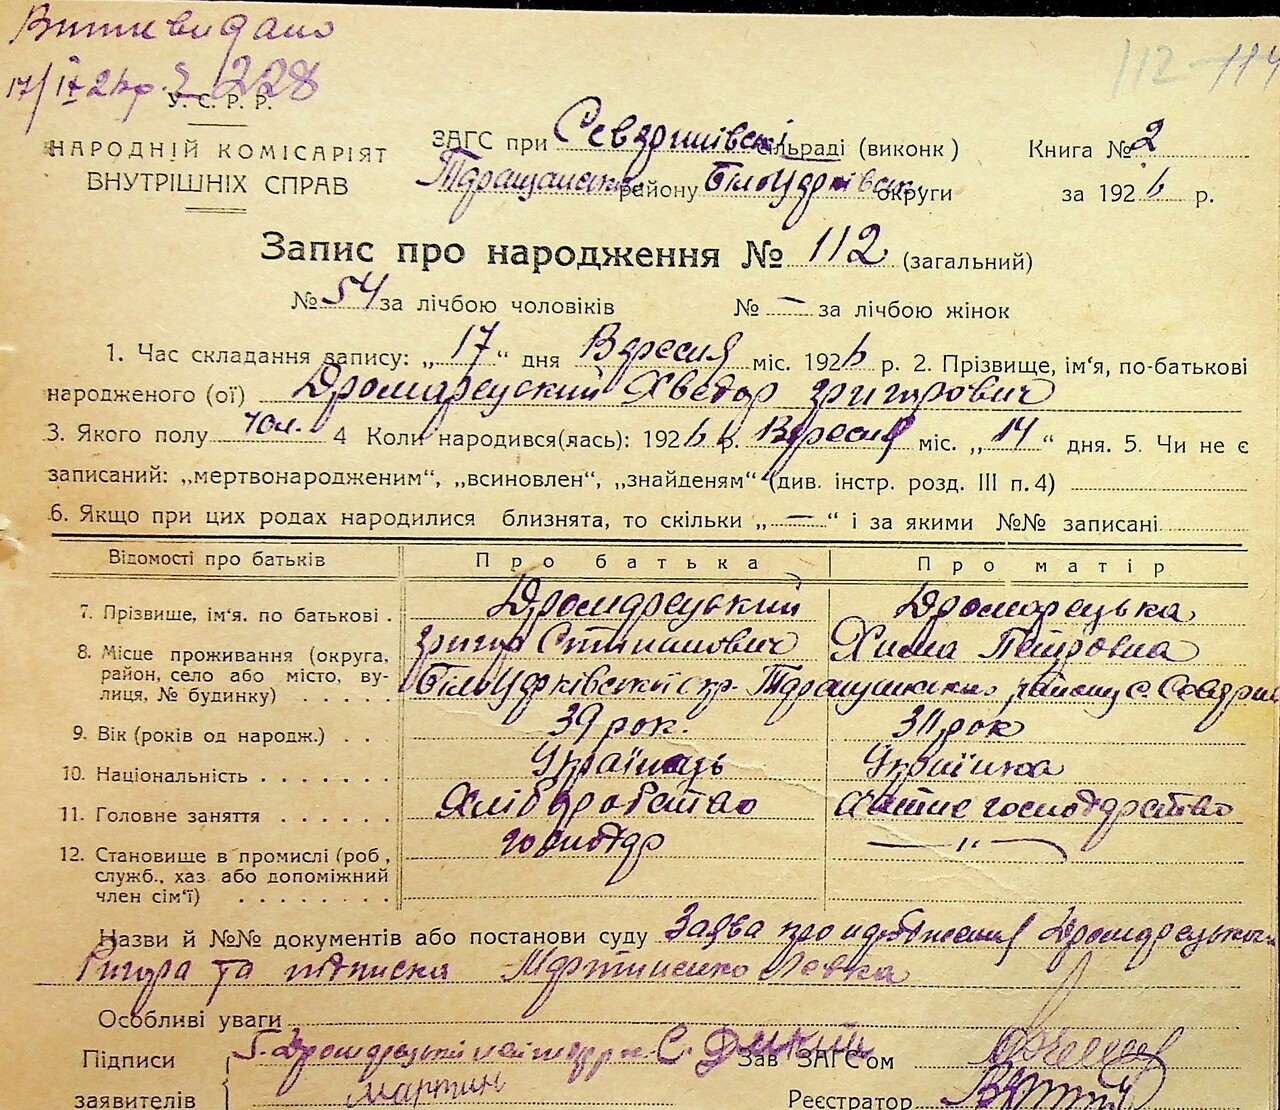 Витяг видано
17/IX 26 р. № 228
112-114
У. С. Р. Р.
НАРОДНІЙ КОМІСАРІЯТ
ВНУТРІШНІХ СПРАВ
ЗАГС при сільраді (виконк)
Таращанськ. району Білоцерківськ. округи
Книга № 2
за 1926 р.
Запис про народження № 112 (загальний)
№ 54 за лічбою чоловіків № — за лічбою жінок
1. Час складання запису: „17“ дня Вересня міс. 1926 р. 2. Прізвище, ім'я, по-батькові
народженого (ої) Дромарецький Хведор Григорович
3. Якого полу чол. 4 Коли народився(лась): 1926 р. Вересня міс. „14“ дня. 5. Чи не є
записаний: „мертвонародженим“, „всиновлен“, „знайденям“ (див. інстр. розд. III п. 4)
6. Якщо при цих родах народилися близнята, то скільки „—“ і за якими №№ записані
Відомості про батьків Про батька Про матір
7. Прізвище, ім'я. по батькові . Дромарецький Дромарецька
Григор Степанович Хима Петровна
8. Місце проживання (округа, район, село або місто, вулиця, № будинку) . . . . . Білоцерківської окр. Таращанськ. району с.
9. Вік (років од народж.) . . 39 рок. рок
10. Національність . . . . . . . Українець Українка
11. Головне заняття . . . . . . Хліборобство хатнє господарство
12. Становище в промислі (роб, служб., хаз або допоміжний член сім'ї) . . . . . . . . господар — „ —
Назви й №№ документів або постанови суду Заява про народження Дромарецького
Григора та підписка Мартиненко Левка
Особливі уваги
Підписи
заявителів
Мартин
Зав ЗАГС'ом
Реєстратор